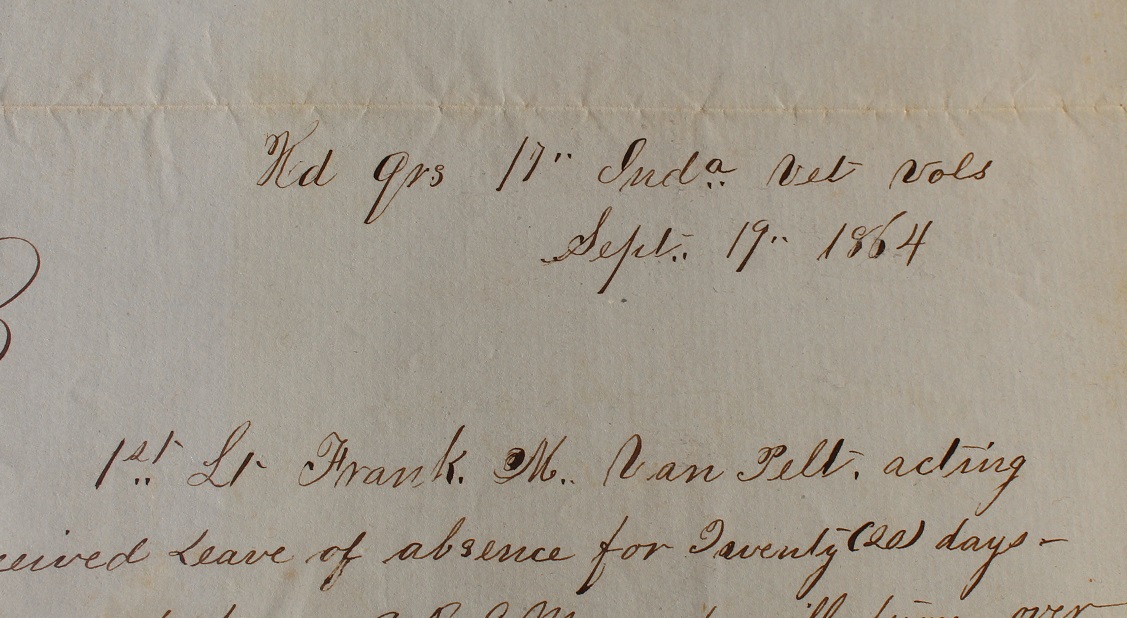 Hd Qrs 17" Inda Vet Vols
Sept. 19" 1864
1st Lt Frank. M. Van Pelt. acting
ceived Leave of absence for Twenty (20) days-
over